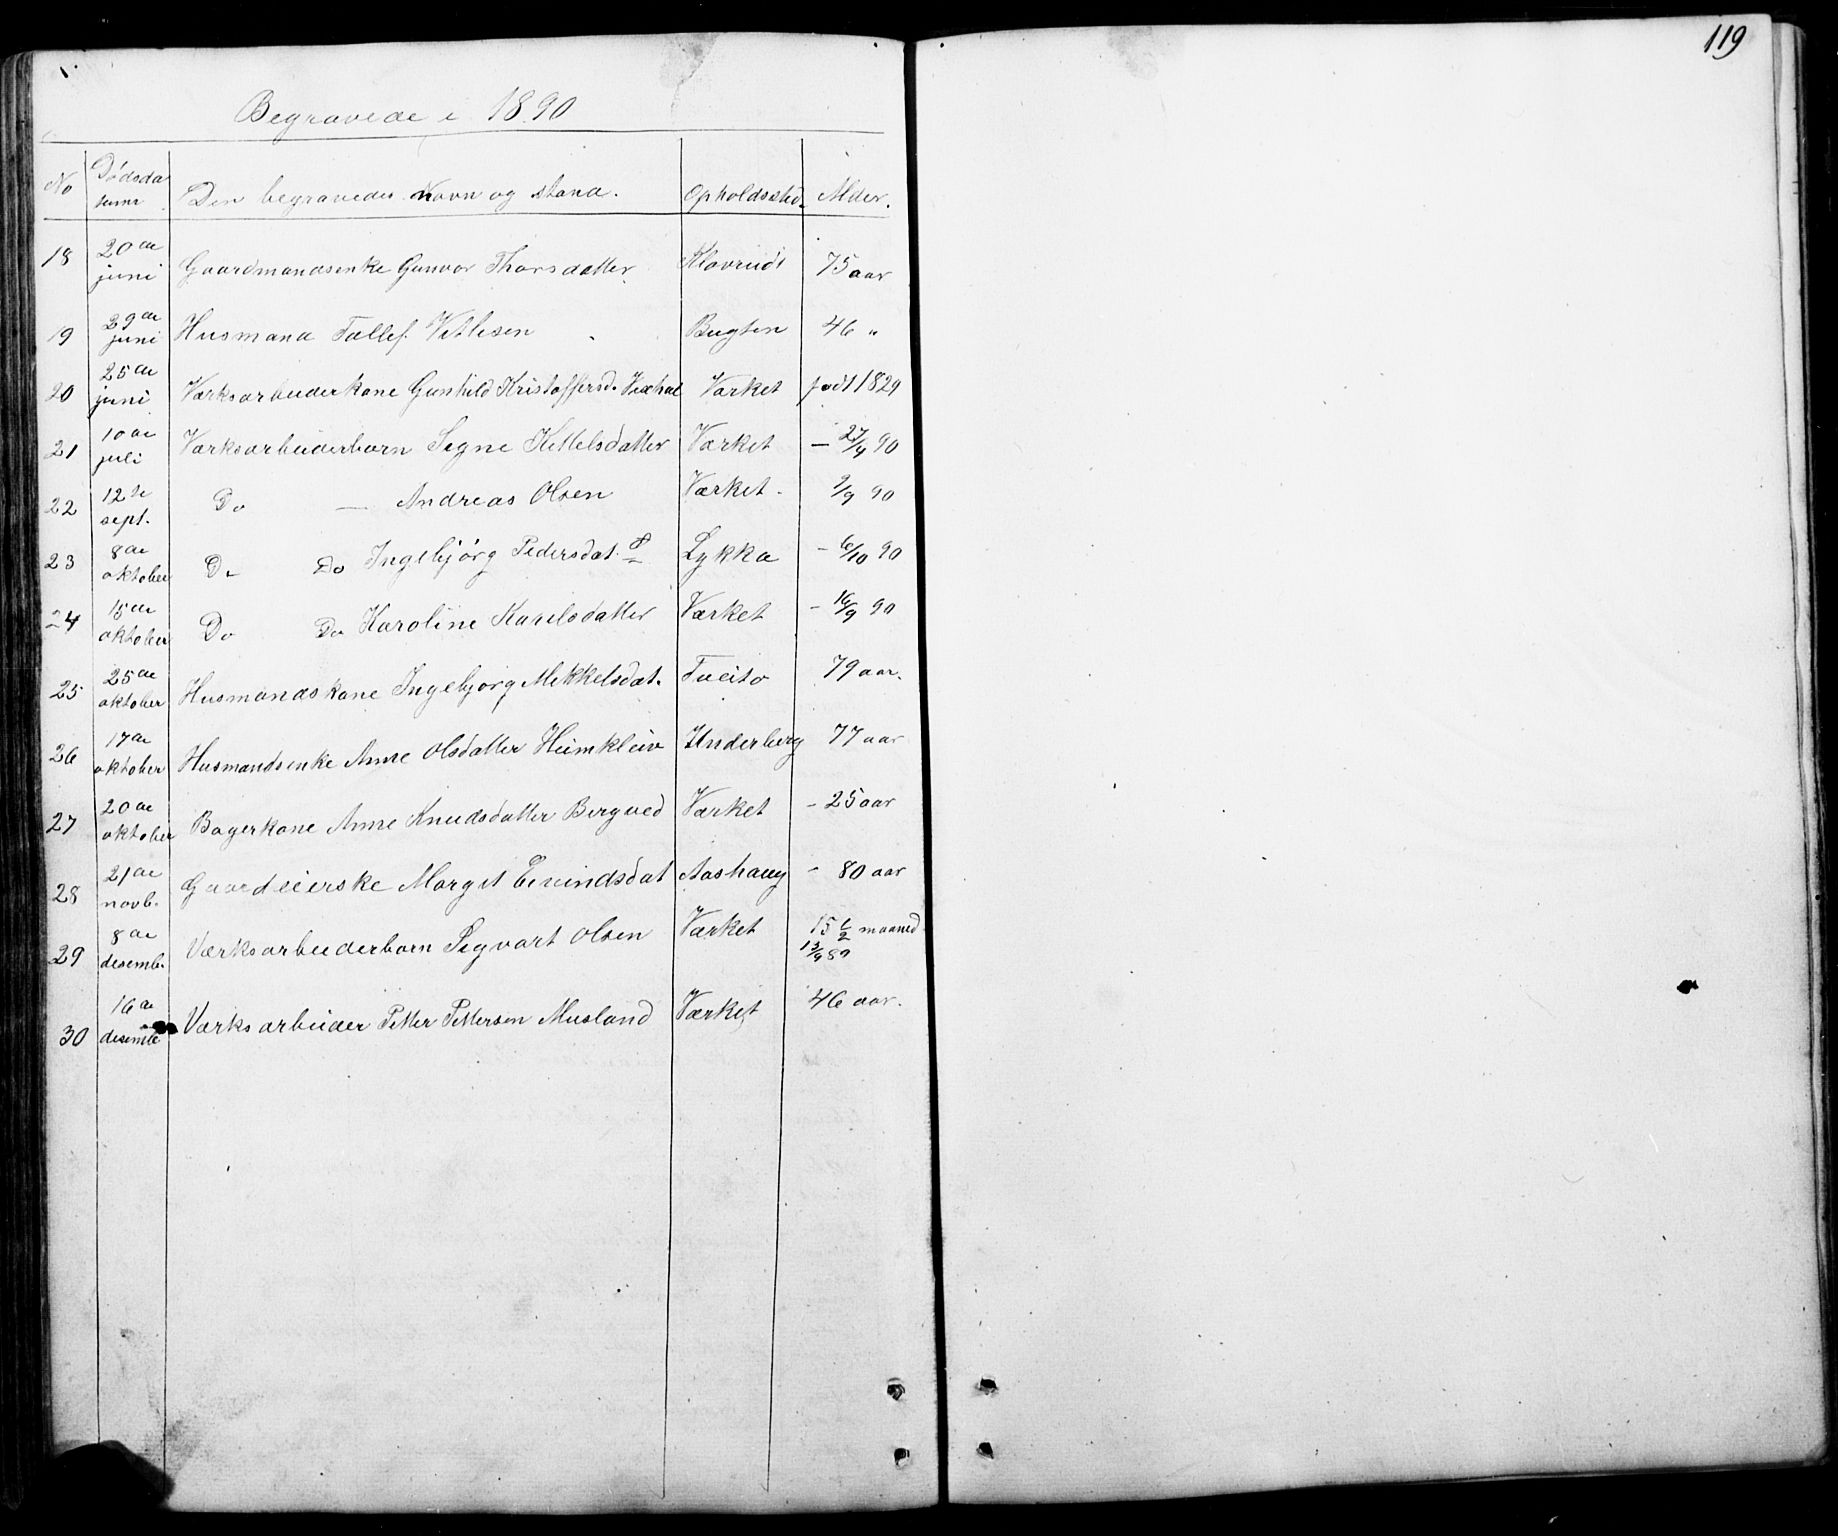 119
Begravede i 1890
No Dødsdatum Den begravedes Navn og stand. Opholdssted. Alder.
18 20de juni Gaardmandsenke Gunvor Thorsdatter. Klovrudt 75 aar
19 29de juni Husmand Tallef Vetlesen Bugten 46 "
20 25de juni Værksarbeiderkone Gunhild Kristoffersd. Værket født 1829
21 10de juli Værksarbeiderbarn Signe Kittelsdatter Værket — 27/4 90
22 12te sept. Do — Andreas Olsen Værket. 9/9 90
23 8de oktober Do Do Ingebjørg Pedersdat. Lykka — 6/10 90
24 15de oktober Do Do Karoline Karelsdatter Værket — 16/9 90
25 25de oktober Husmandskone Ingebjørg Mikkelsdat. Tveito 79 aar.
26 17de oktober Husmandsenke Anne Olsdatter Heimkleiv Underberg 77 aar
27 20de oktober Bagerkone Anne Knudsdatter Bergved Værket — 25 aar
28 21de novb. Gaardeierske Margit Eivindsdat Aashaug — 80 aar
29 8de desemb. Værksarbeiderbarn Sigvart Olsen Værket 15 1/2 maaned
13/9 89
30 16de desemb Værksarbeider Petter Pettersen Musland Værket 46 aar.